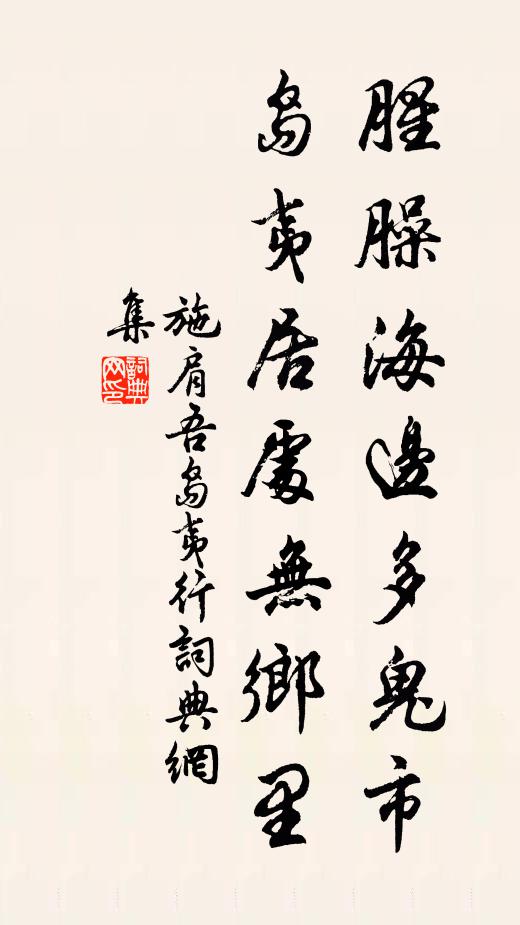 腥臊海邊多鬼市
島夷居處無鄉里
施肩吾島夷行詞典網
集
詞典网印